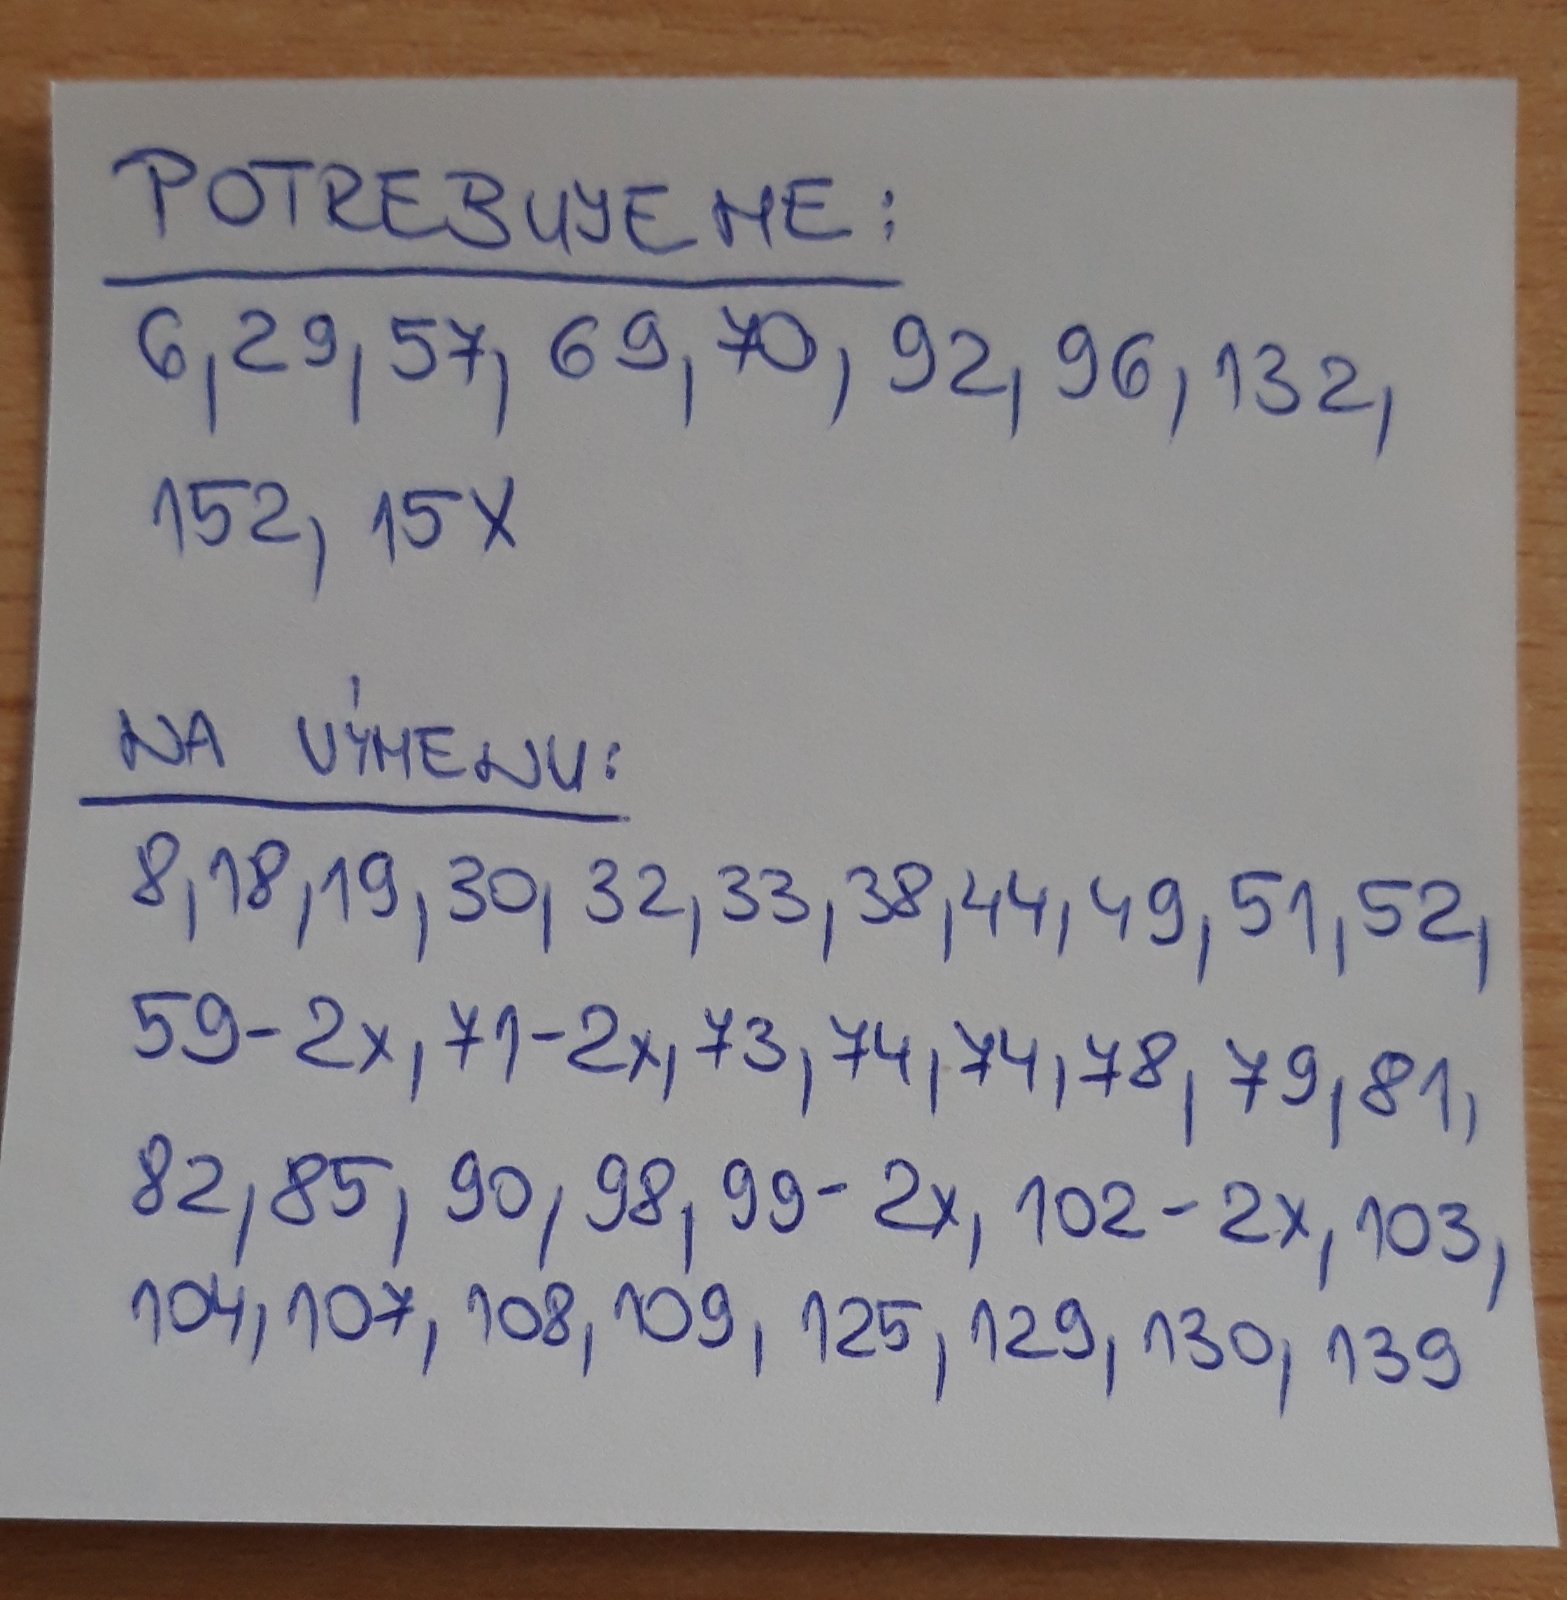 POTREBUJEME:
6, 29, 57, 69, 70, 92, 96, 132,
152, 15X
NA VÝMENU:
8, 18, 19, 30, 32, 33, 38, 44, 49, 51, 52,
59-2x, 71-2x, 73, 74, 74, 78, 79, 81,
82, 85, 90, 98, 99-2x, 102-2x, 103,
104, 107, 108, 109, 125, 129, 130, 139